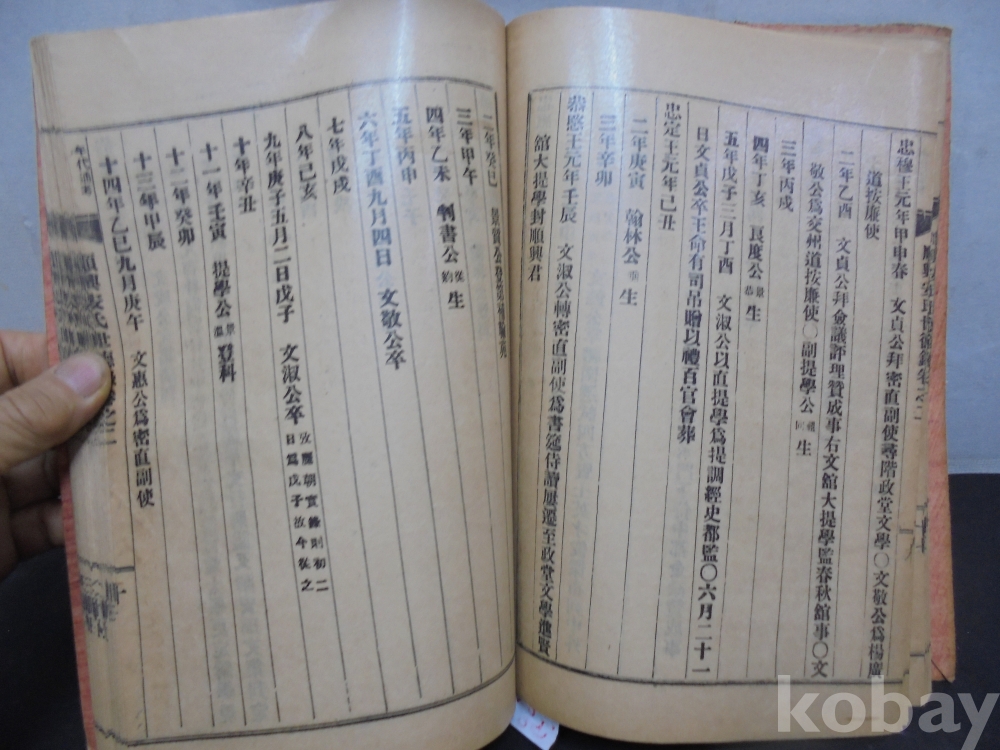 忠穆王元年甲申春 文貞公拜密直副使尋階政堂文學〇文敬公爲楊廣
道按廉使
二年乙酉 文貞公拜僉議評理贊成事右文館大提學監春秋館事〇文
敬公爲交州道按廉使〇副提學公 生
三年丙戌
四年丁亥 良度公 景恭 生
五年戊子三月丁酉 文淑公以直提學爲提調經史都監〇六月二十一
日文貞公卒王命有司吊贈以禮百官會葬
忠定王元年己丑
二年庚寅 翰林公 生
三年辛卯
恭愍王元年壬辰 文淑公轉密直副使爲書筵侍讀屢遷至政堂文學進賢
館大提學封順興君
二年癸巳
三年甲午
四年乙未 判書公 從約 生
五年丙申
六年丁酉九月四日 文敬公卒
七年戊戌
八年己亥
九年庚子五月二日戊子 文淑公卒 攷麗朝實錄則初二日爲戊子故今從之
十年辛丑
十一年壬寅 提學公 景溫 登科
十二年癸卯
十三年甲辰
十四年乙巳九月庚午 文惠公爲密直副使
kobay